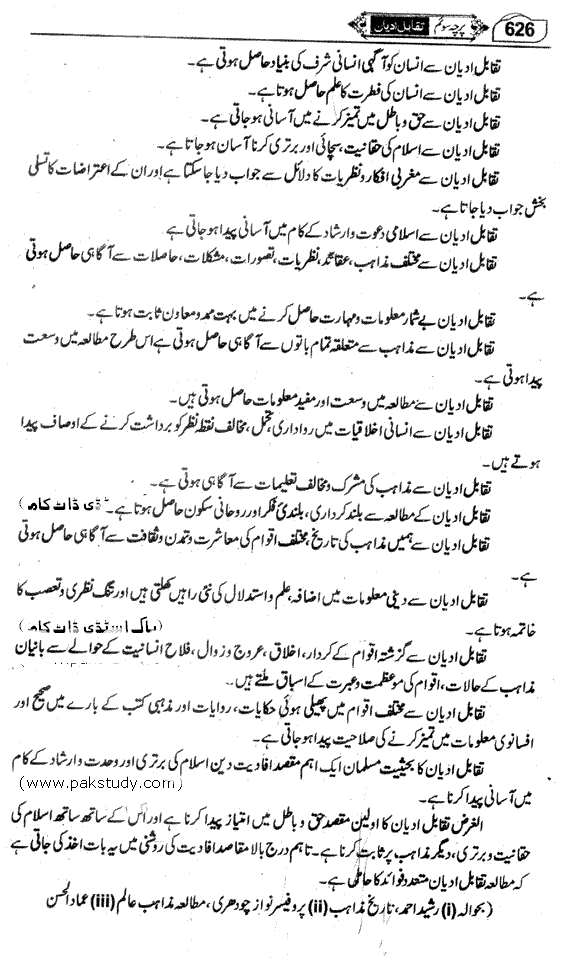 626 پرچہ سوئم تقابل ادیان
تقابل ادیان سے انسان کو آگہی انسانی شرف کی بنیاد حاصل ہوتی ہے۔
تقابل ادیان سے انسان کی فطرت کا علم حاصل ہوتا ہے۔
تقابل ادیان سے حق و باطل میں تمیز کرنے میں آسانی ہو جاتی ہے۔
تقابل ادیان سے اسلام کی حقانیت، سچائی اور برتری کرنا آسان ہو جاتا ہے۔
تقابل ادیان سے مغربی افکار و نظریات کا دلائل سے جواب دیا جا سکتا ہے اور ان کے اعتراضات کا تسلی
بخش جواب دیا جاتا ہے۔
تقابل ادیان سے اسلامی دعوت و ارشاد کے کام میں آسانی پیدا ہو جاتی ہے
تقابل ادیان سے مختلف مذاہب، عقائد، نظریات، تصورات، مشکلات، حاصلات سے آگاہی حاصل ہوتی
ہے۔
تقابل ادیان بے شمار معلومات و مہارت حاصل کرنے میں بہت ممد و معاون ثابت ہوتا ہے۔
تقابل ادیان سے مذاہب سے متعلقہ تمام باتوں سے آگاہی حاصل ہوتی ہے اس طرح مطالعہ میں وسعت
پیدا ہوتی ہے۔
تقابل ادیان سے مطالعہ میں وسعت اور مفید معلومات حاصل ہوتی ہیں۔
تقابل ادیان سے انسانی اخلاقیات میں رواداری، تحمل، مخالف نقطہ نظر کو برداشت کرنے کے اوصاف پیدا
ہوتے ہیں۔
تقابل ادیان سے مذاہب کی مشترک و مخالف تعلیمات سے آگاہی ہوتی ہے۔
تقابل ادیان کے مطالعہ سے بلند کرداری، بلندیٔ فکر اور روحانی سکون حاصل ہوتا ہے۔ ڈی ڈاٹ کام)
تقابل ادیان سے ہمیں مذاہب کی تاریخ، مختلف اقوام کی معاشرت و تمدن و ثقافت سے آگاہی حاصل ہوتی
ہے۔
تقابل ادیان سے دینی معلومات میں اضافہ، علم و استدلال کی نئی راہیں کھلتی ہیں اور تنگ نظری و تعصب کا
خاتمہ ہوتا ہے۔ (پاک اسٹڈی ڈاٹ کام)
تقابل ادیان سے گزشتہ اقوام کے کردار، اخلاق، عروج و زوال، فلاح انسانیت کے حوالے سے بانیان
مذاہب کے حالات، اقوام کی موعظمت و عبرت کے اسباق ملتے ہیں۔
تقابل ادیان سے مختلف اقوام میں پھیلی ہوئی حکایات، روایات اور مذہبی کتب کے بارے میں صحیح اور
افسانوی معلومات میں تمیز کرنے کی صلاحیت پیدا ہو جاتی ہے۔
تقابل ادیان کا بحیثیت مسلمان ایک اہم مقصد افادیت دین اسلام کی برتری اور وحدت و ارشاد کے کام
میں آسانی پیدا کرنا ہے۔ (www.pakstudy.com)
الغرض تقابل ادیان کا اولین مقصد حق و باطل میں امتیاز پیدا کرنا ہے اور اس کے ساتھ ساتھ اسلام کی
حقانیت و برتری، دیگر مذاہب پر ثابت کرنا ہے۔ تاہم درج بالا مقاصد افادیت کی روشنی میں یہ بات اخذ کی جاتی ہے
کہ مطالعہ تقابل ادیان متعدد فوائد کا حامل ہے۔
(بحوالہ (i) رشید احمد، تاریخ مذاہب (ii) پروفیسر نواز چودھری، مطالعہ مذاہب عالم (iii) عماد الحسن